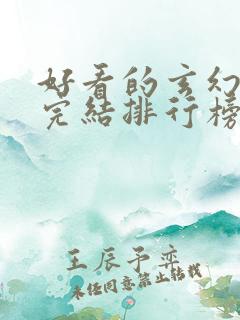 好看的玄幻
完结排行榜
王辰予奕
未经同意禁止转载